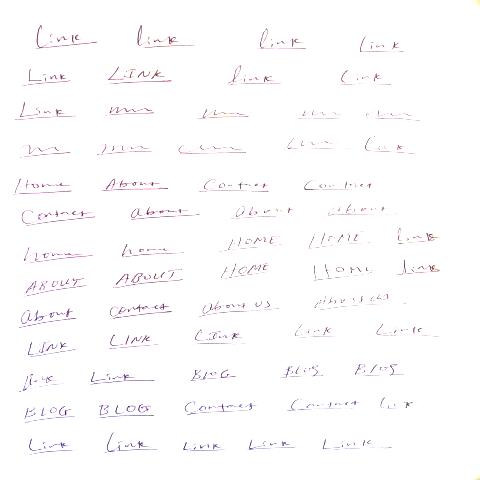 Link link link Link
Link LINK link Link
Link
Link
Home About Contact Contact
Contact about about about
Home home HOME HOME link
ABOUT ABOUT HOME HOME link
About contact about us about us
LINK LINK LINK Link Link
link Link BLOG BLOG BLOG
BLOG BLOG Contact Contact link
Link Link Link Link Link